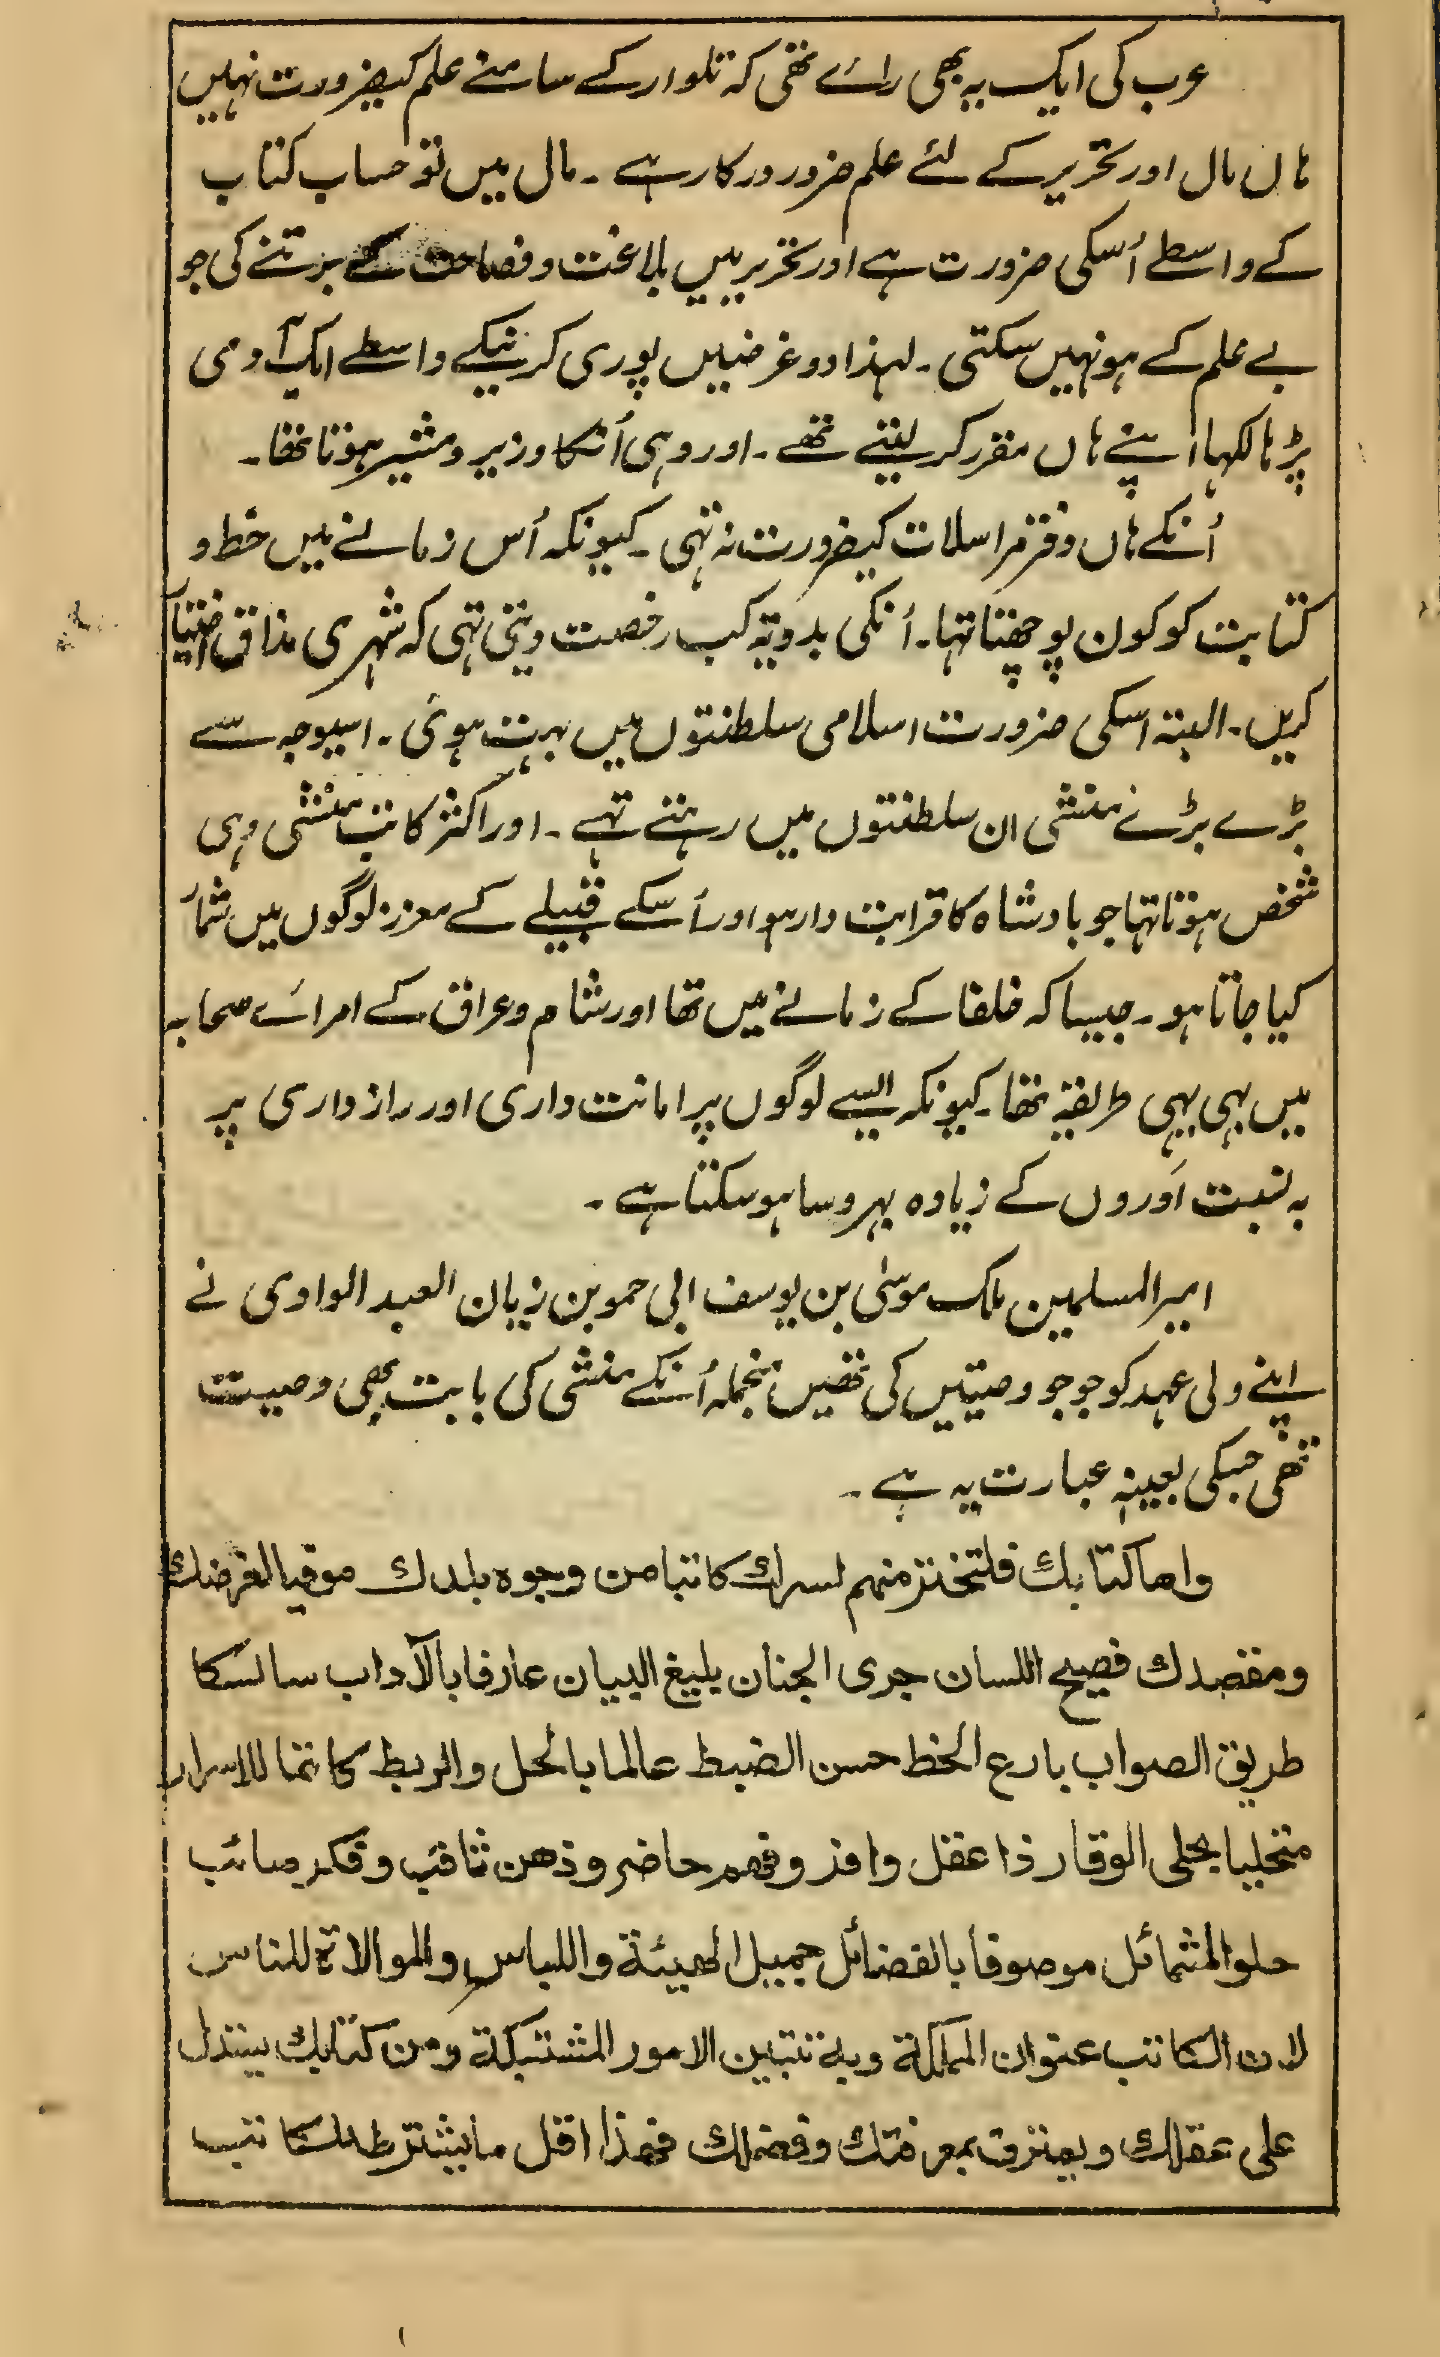 عرب کی ایک یہ بھی رائے تھی کہ تلوار کے سامنے علم کیضرورت نہیں
ہاں مال اور تحریر کے لئے علم ضرور درکار ہے ۔ مال میں تو حساب کتاب
کے واسطے اُسکی ضرورت ہے اور تحریر میں بلاغت و فصاحت کے برتنے کی جو
بے علم کے ہو نہیں سکتی ۔ لہذا دو غرضیں پوری کرنیکے واسطے ایک آدمی
پڑہا لکہا اپنے ہاں مقرر کر لیتے تھے ۔ اور وہی اُنکا وزیر و مشیر ہوتا تھا ۔
اُنکے ہاں دفتر مراسلات کیضرورت نہ تہی ۔ کیونکہ اُس زمانے میں خط و
کتابت کو کون پوچھتا تہا ۔ اُنکی بدویۃ کب رخصت دیتی تہی کہ شہری مذاق اختیار
کریں ۔ البتہ اسکی ضرورت اسلامی سلطنتوں میں بہت ہوئی ۔ اسیوجہ سے
بڑے بڑے منشی ان سلطنتوں میں رہتے تہے ۔ اور اکثر کاتب منشی وہی
شخص ہوتا تہا جو بادشاہ کا قرابت دار ہو اور اُسکے قبیلے کے معزز لوگوں میں شمار
کیا جاتا ہو ۔ جیسا کہ خلفا کے زمانے میں تھا اور شام و عراق کے امرائے صحابہ
میں بہی یہی طریقہ تھا ۔ کیونکہ ایسے لوگوں پر امانت داری اور رازداری پر
بہ نسبت اَوروں کے زیادہ بہروسا ہو سکتا ہے ۔
امیر المسلمین ملک موسیٰ بن یوسف ابی حمو بن زیان العبد الوادی نے
اپنے ولی عہد کو جو جو وصیتیں کی تھیں منجملہ اُنکے منشی کی بابت بھی وصیت
تھی جسکی بعینہٖ عبارت یہ ہے ۔
واما كتابك فلتختر منهم لسرك كاتبا من وجوه بلدك موفيا لغرضك
ومقصدك فصيح اللسان جرى الجنان بليغ البيان عارفا بالآداب سالكا
طريق الصواب بارع الخط حسن الضبط عالما بالحل والربط كاتما للاسرار
متحليا بحلى الوقار ذا عقل وافر وفهم حاضر وذهن ثاقب وفكر صائب
حلو الشمائل موصوفا بالفضائل جميل الهيئة واللباس والموالاة للناس
لان الكاتب عنوان المملكة وبه تتبين الامور المشتبكة ومن كتابك يستدل
على عقلك ويعترف بمعرفتك وفضلك فهذا اقل ما يشترط للكاتب